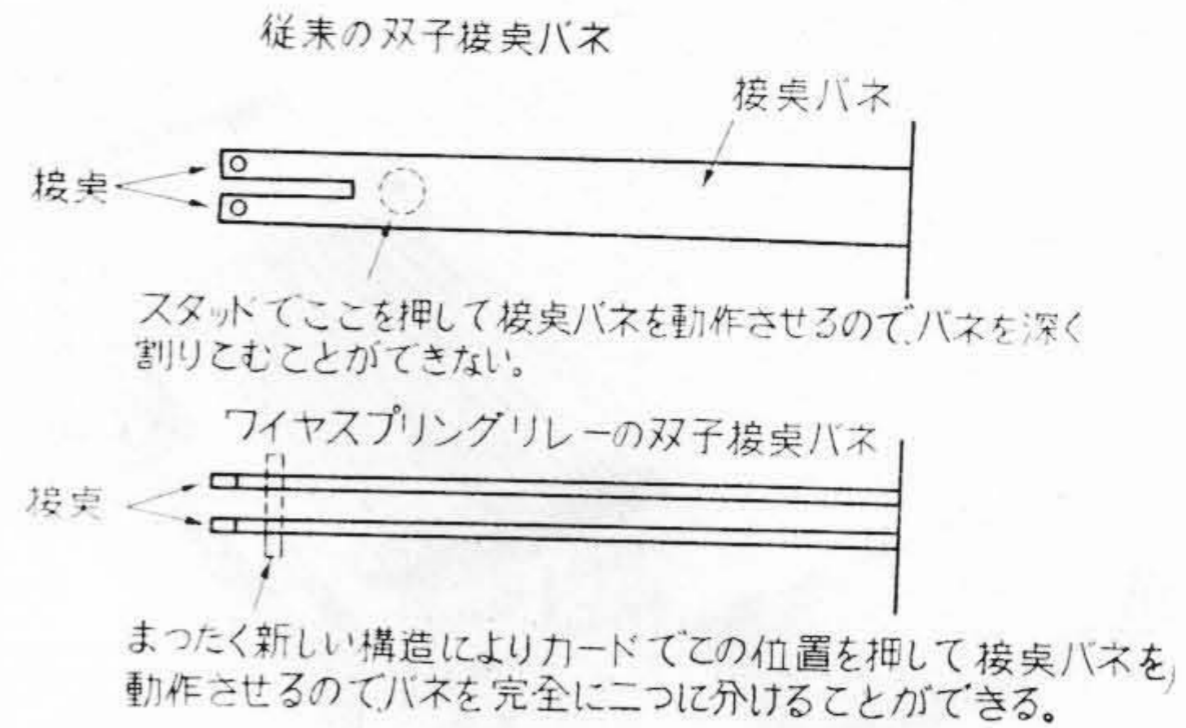 従来の双子接点バネ
接点バネ
接点
スタッドでここを押して接点バネを動作させるので、バネを深く
割りこむことができない。
ワイヤスプリングリレーの双子接点バネ
接点
まったく新しい構造によりカードでこの位置を押して接点バネを
動作させるので、バネを完全に二つに分けることができる。